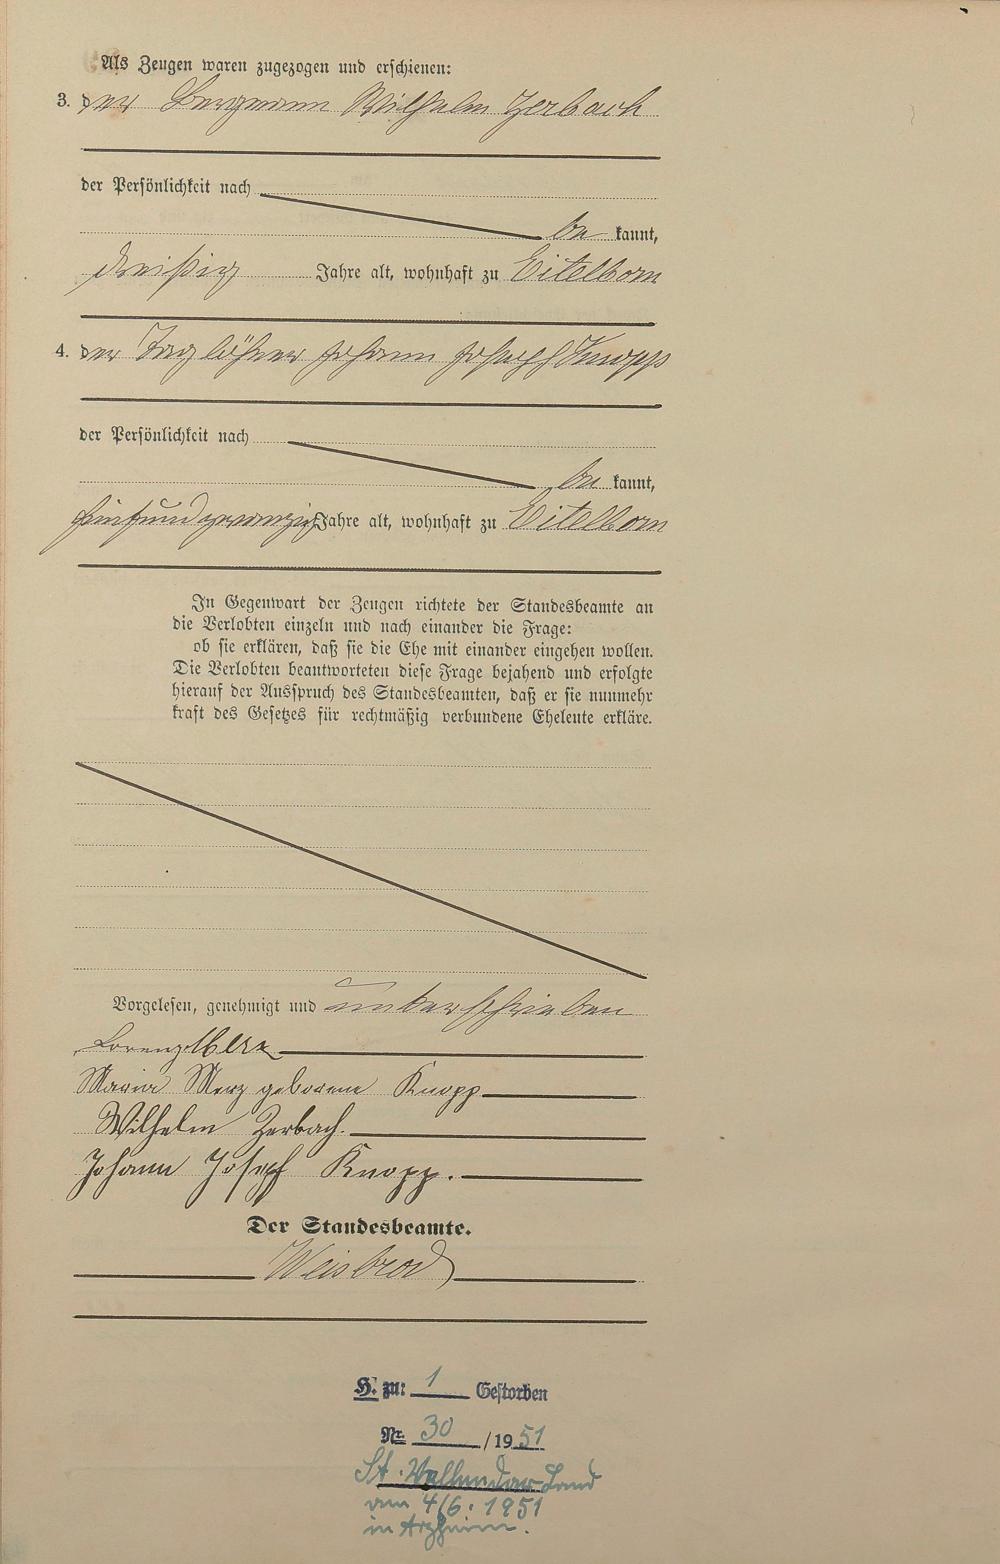 Als Zeugen waren zugezogen und erschienen:
3. der Bergmann Wilhelm Zerbach
der Persönlichkeit nach
be kannt,
dreißig Jahre alt, wohnhaft zu Eitelborn
4. der Taglöhner Johann Joseph Knopp
der Persönlichkeit nach
be kannt,
fünfundzwanzig Jahre alt, wohnhaft zu Eitelborn
In Gegenwart der Zeugen richtete der Standesbeamte an
die Verlobten einzeln und nach einander die Frage:
ob sie erklären, daß sie die Ehe mit einander eingehen wollen.
Die Verlobten beantworteten diese Frage bejahend und erfolgte
hierauf der Ausspruch des Standesbeamten, daß er sie nunmehr
kraft des Gesetzes für rechtmäßig verbundene Eheleute erkläre.
Vorgelesen, genehmigt und unterschrieben
Lorenz Merz
Maria Merz geborene Knopp
Wilhelm Zerbach.
Johann Josef Knopp.
Der Standesbeamte.
Weisbrod
H. zu: 1 Gestorben
Nr. 30 / 19 51
St. Vallendar-Land
am 4/6. 1951
in Arzheim.